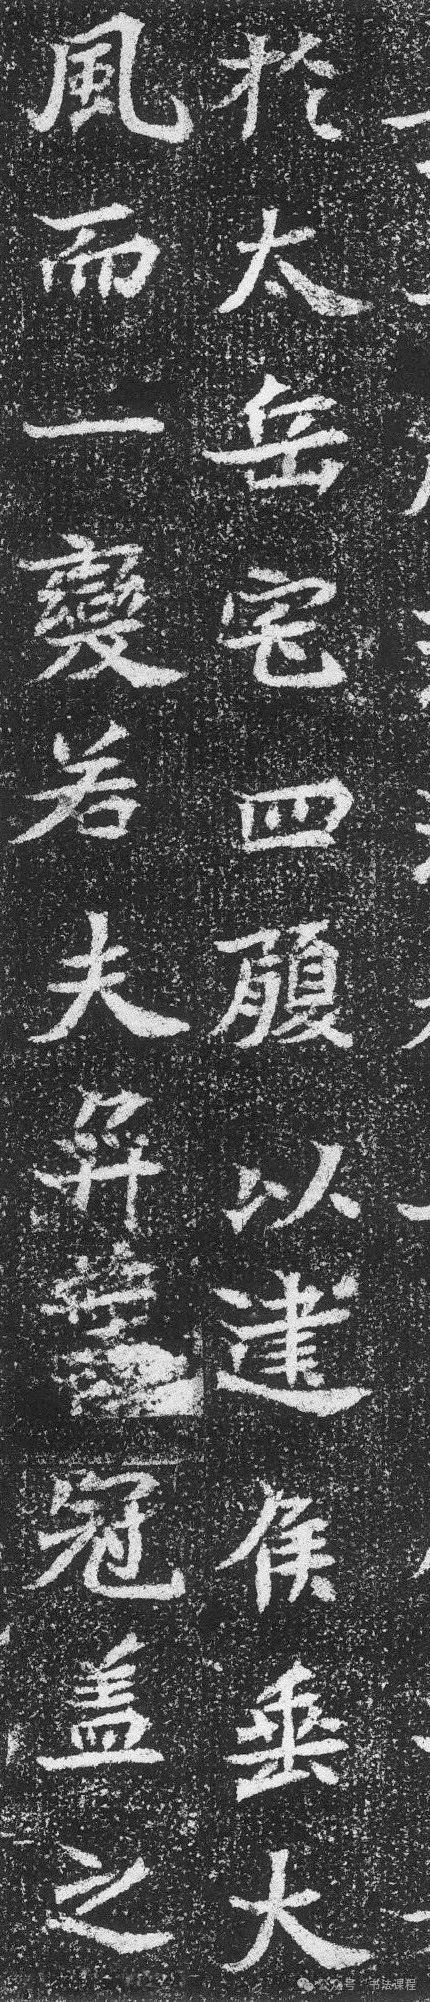 於太岳宅四履以建侯垂大
風而一變若夫冠盖之
公众号 · 书法课程